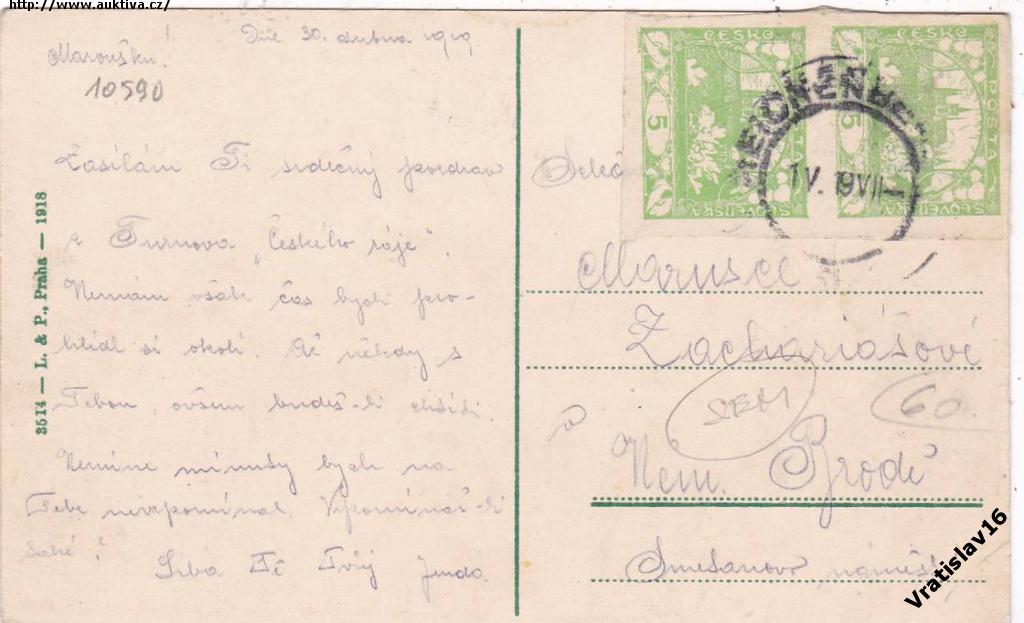 http://www.auktiva.cz/
Dne 30. dubna 1919
Maroušku!
10590
Zasílám Ti srdečný pozdrav
z Turnova „Českého ráje".
Nemám však čas bych pro-
hlídl si okolí. Až někdy s
Tebou, ovšem budeš-li chtíti.
Nemine minuty bych na
Tebe nevzpomínal. Vzpomínáš-li
také?
Líbá Tě Tvůj Jenda
3514 — L. & P., Praha — 1918
ČESKO
POŠTA
SLOVENSKÁ
5
ČESKO
POŠTA
SLOVENSKÁ
5
REICHENBE
1 V. 19 VII
Marusce
Zachariášové
v
Něm. Brodě
SEM
60
Smetanovo náměstí
Vratislav16